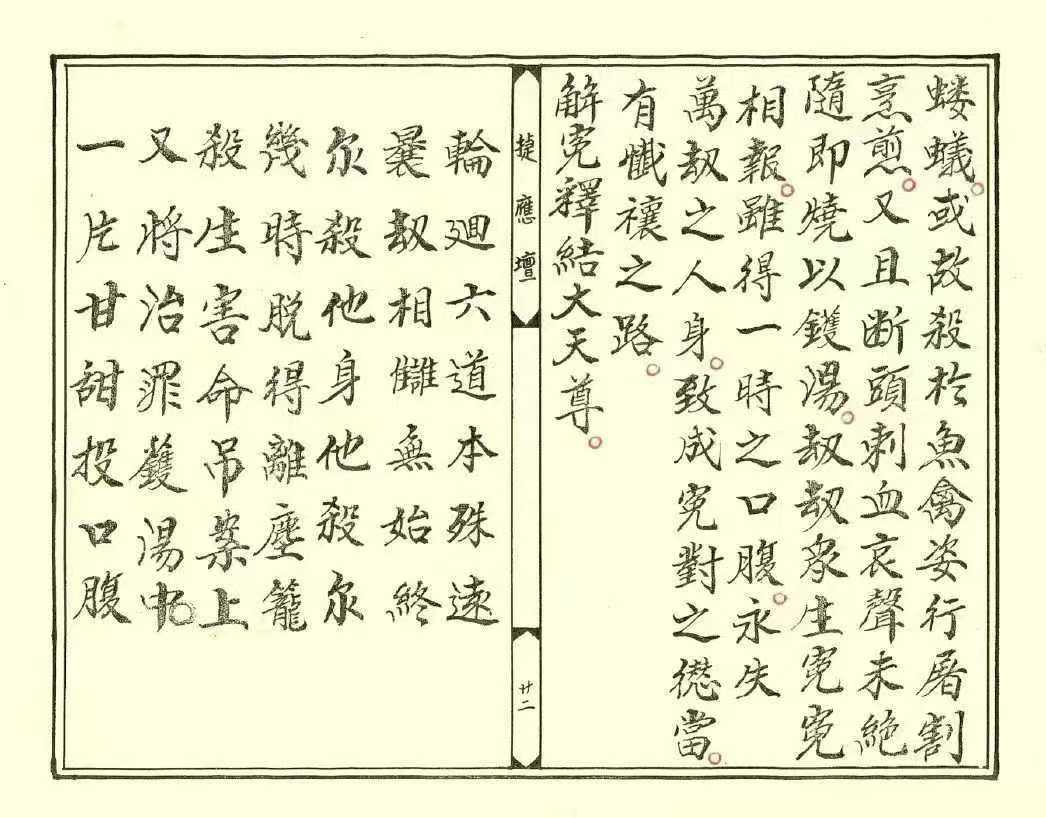 螻蟻。或故殺於魚禽姿行屠割
烹煎。又且断頭刺血哀聲未絶
隨即燒以鑊湯。刼刼衆生寃寃
相報。雖得一時之口腹。永失
萬刼之人身。致成寃對之愆當。
有懺禳之路。
解寃釋結大天尊。
捷應壇
廿二
輪廻六道本殊途
曩刼相讎無始終
尔殺他身他殺尔
幾時脱得離塵籠
殺生害命吊案上
又將治罪鑊湯中
一片甘甜投口腹